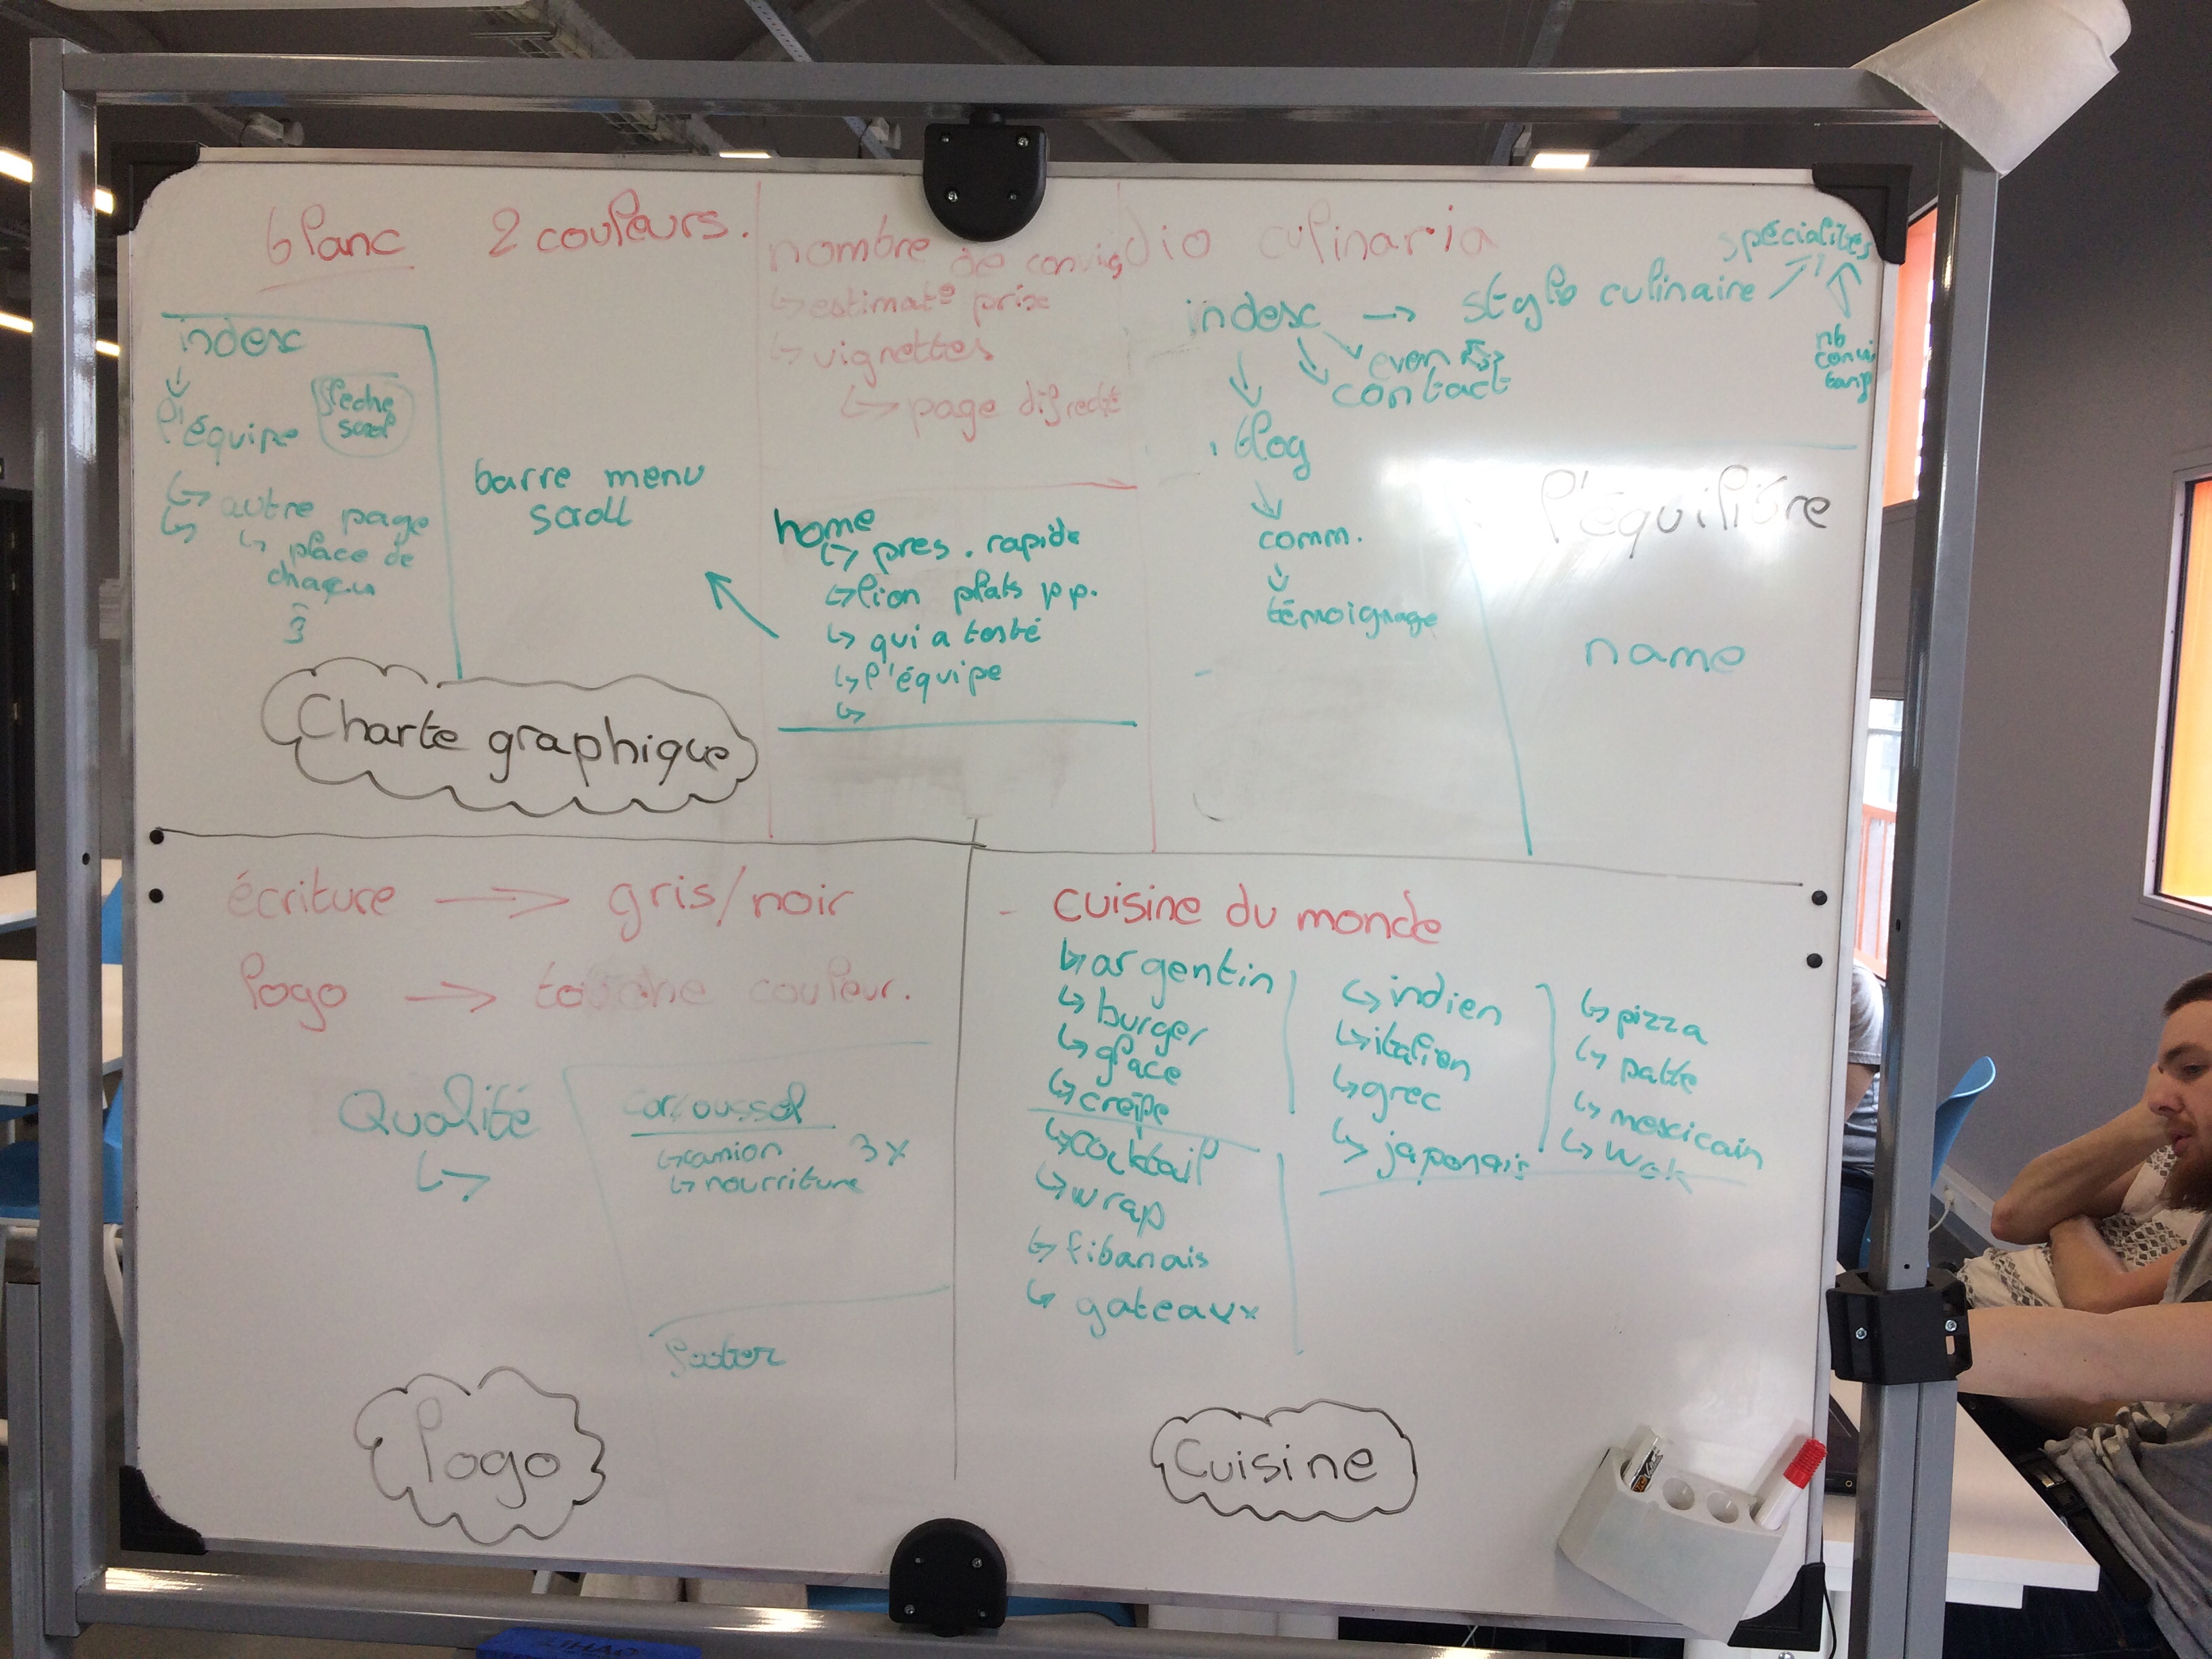 blanc 2 couleurs.
index
l'équipe
fleche
scrol
autre page
place de
chacun
3
barre menu
scroll
Charte graphique
nombre de convi
estimate prix
vignettes
page
home
pres. rapide
lion plats pp.
qui a testé
l'équipe
dio culinaria
index → style culinaire
spécialités
nb
convi
contact
blog
comm.
témoignage
l'équilibre
name
écriture → gris/noir
logo → touche couleur.
Qualité
caroussel
camion 3x
nourriture
footer
logo
- cuisine du monde
argentin
burger
glace
creîpe
cocktail
wrap
libanais
gateaux
indien
italien
grec
japonais
pizza
patte
mexicain
wok
Cuisine